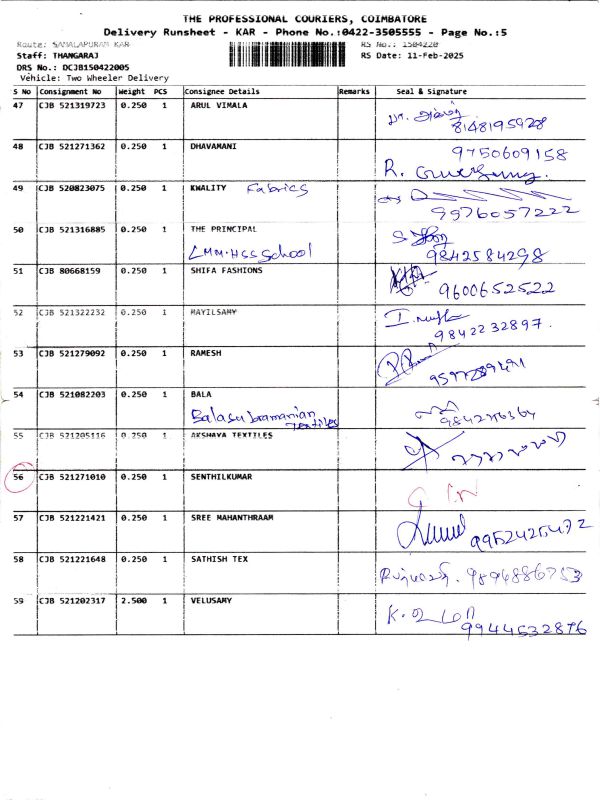 THE PROFESSIONAL COURIERS, COIMBATORE
Delivery Runsheet - KAR - Phone No.:0422-3505555 - Page No.:5
Route: SAMALAPURAM KAR
RS No.: 1504220
Staff: THANGARAJ
RS Date: 11-Feb-2025
DRS No.: DCJB150422005
Vehicle: Two Wheeler Delivery
S No Consignment No Weight PCS Consignee Details Remarks Seal & Signature
47 CJB 521319723 0.250 1 ARUL VIMALA
8148195928
48 CJB 521271362 0.250 1 DHAVAMANI 9750609158
R.
49 CJB 520823075 0.250 1 KWALITY Fabrics
9976057222
50 CJB 521316885 0.250 1 THE PRINCIPAL
LMM.HSS School 9842584298
51 CJB 80668159 0.250 1 SHIFA FASHIONS
9600652522
52 CJB 521322232 0.250 1 MAYILSAMY
9842232897.
53 CJB 521279092 0.250 1 RAMESH
54 CJB 521082203 0.250 1 BALA
Balasubramanian
Textiles
55 CJB 521205116 0.250 1 AKSHAYA TEXTILES
56 CJB 521271010 0.250 1 SENTHILKUMAR
57 CJB 521221421 0.250 1 SREE MAHANTHRAAM
9952425472
58 CJB 521221648 0.250 1 SATHISH TEX
9894886753
59 CJB 521202317 2.500 1 VELUSAMY
9944532876